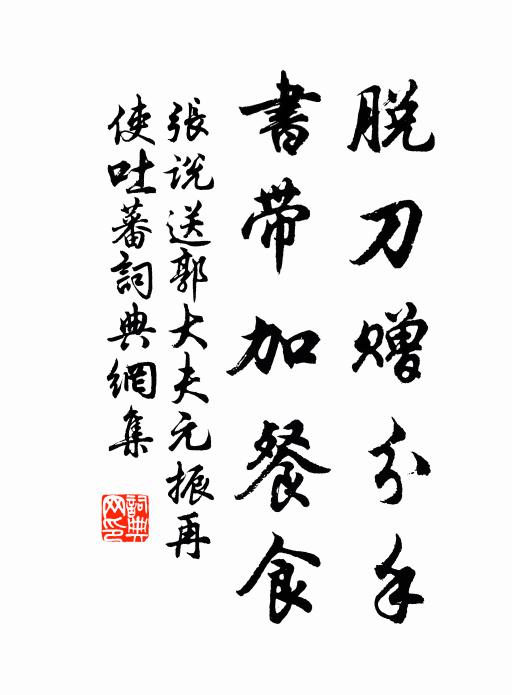 脱刀赠分手
書帶加餐食
張説送郭大夫元振再
使吐蕃詞典網集
詞典
网印